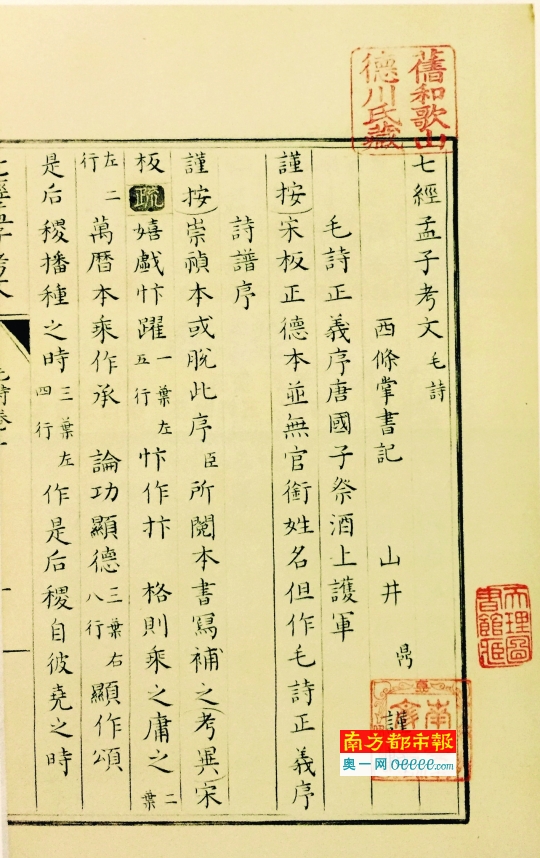 七經孟子考文 毛詩
西條掌書記 山井 鼎 謹
毛詩正義序唐國子祭酒上護軍
謹按宋板正德本並無官銜姓名但作毛詩正義序
詩譜序
謹按崇禎本或脫此序臣所閱本書寫補之考異宋
板疏嬉戲忭躍一葉左五行忭作抃 格則乘之庸之二葉
左二行萬曆本乘作承 論功顯德三葉右八行顯作頌
是后稷播種之時三葉左四行作是后稷自彼堯之時
舊和歌山
德川氏藏
天理圖
書館藏
南方都市報
奥一网 oeeee.com